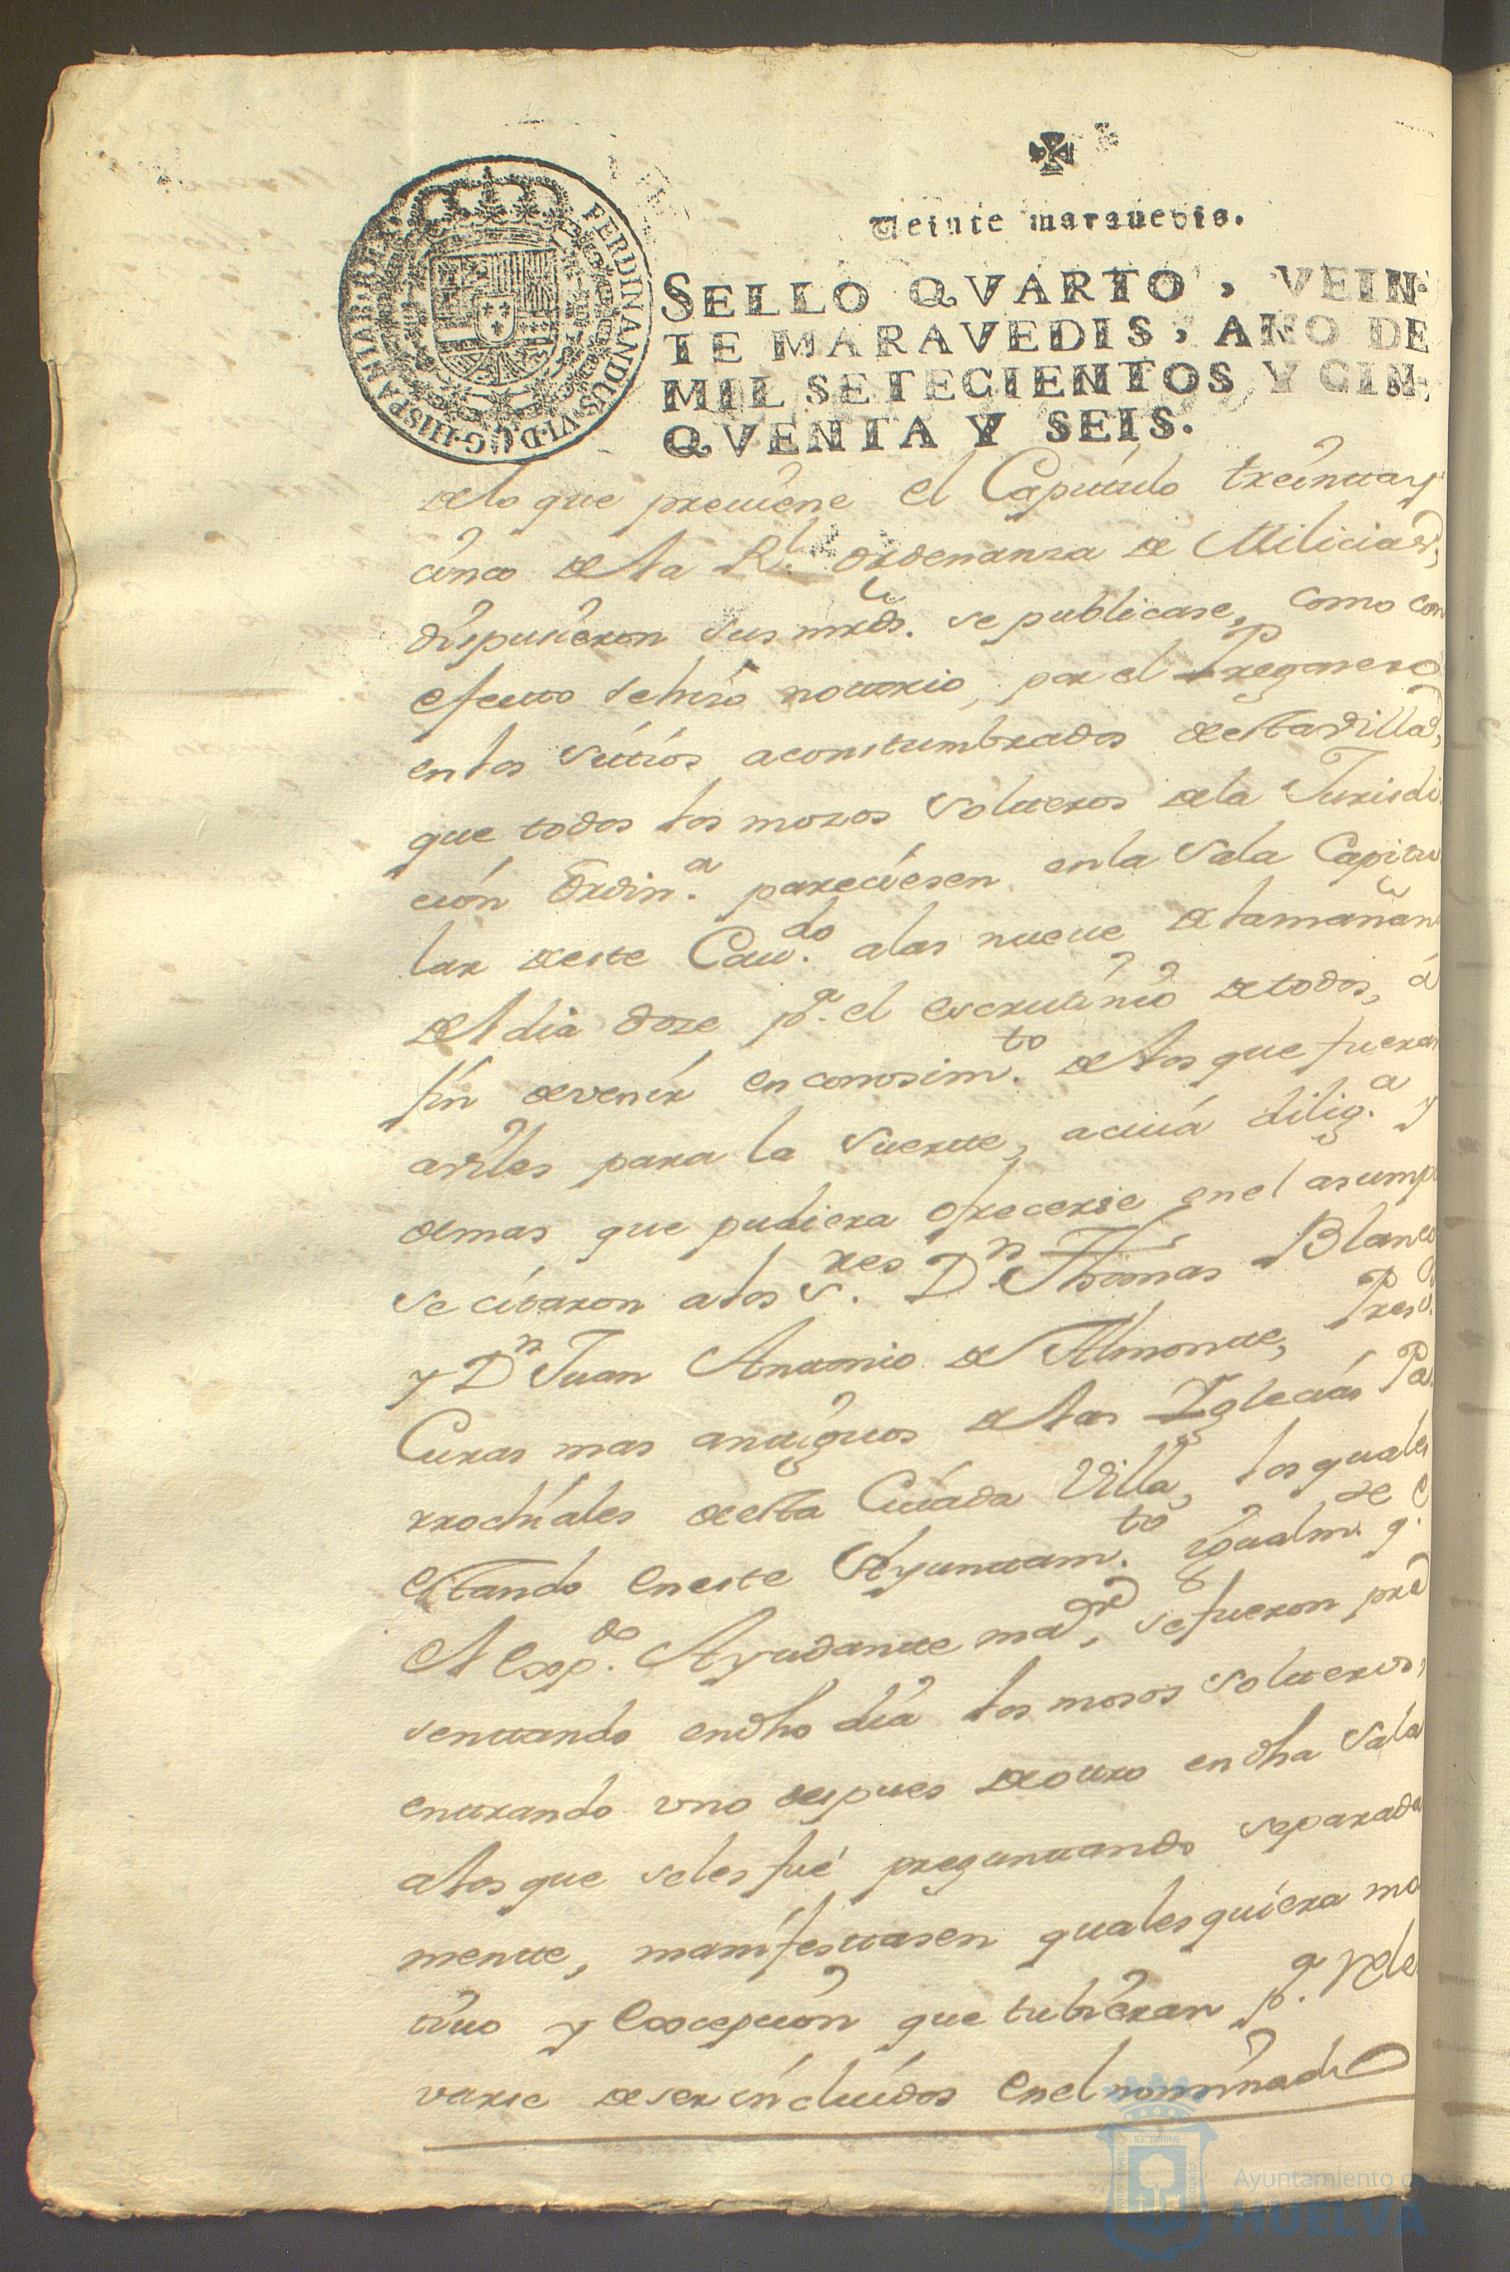 Veinte marauedis.
SELLO QVARTO, VEIN-
TE MARAVEDIS, AÑO DE
MIL SETECIENTOS Y CIN-
QVENTA Y SEIS.
FERDINANDUS·VI·D·G·HISPANIAR·REX
delo que preuiene el Capitulo treinta y
cinco dela Rl. Ordenanza de Milicias,
dispusieron sus mrds. se publicase, como con
efecto se hizo notorio, por el Pregonero
en los sitios acostumbrados desta villa,
que todos los mozos solteros dela Jurisdi
ción Ordin.a pareciesen en la Sala Capitu
lar deste Cau.do alas nueue dela mañana
del dia doze p.a el escrutinio detodos, á
fin devenir en conosim.to delos que fueran
aviles para la Suerte, acuia dilig.a y
demas que pudiera ofrecerse en el asumpto
se citaron alos S.res Dn Thomas Blanco
y Dn Juan Antonio de Almonte, Presv.os
Curas mas antiguos delas Iglecias Pa
rrochiales desta Citada Villa, los quales
estando en este Ayuntam.to igualm.te q.e
el exp.do Ayudante maór, se fueron pre
sentando en dho dia los mosos solteros,
entrando vno despues de otro en dha Sala
alos que seles fué preguntando separada
mente, manifestasen qualesquiera mo
tiuo y excepción que tubieran p.a Rele
varse de ser incluidos en el nominado
Ayuntamiento de
HUELVA